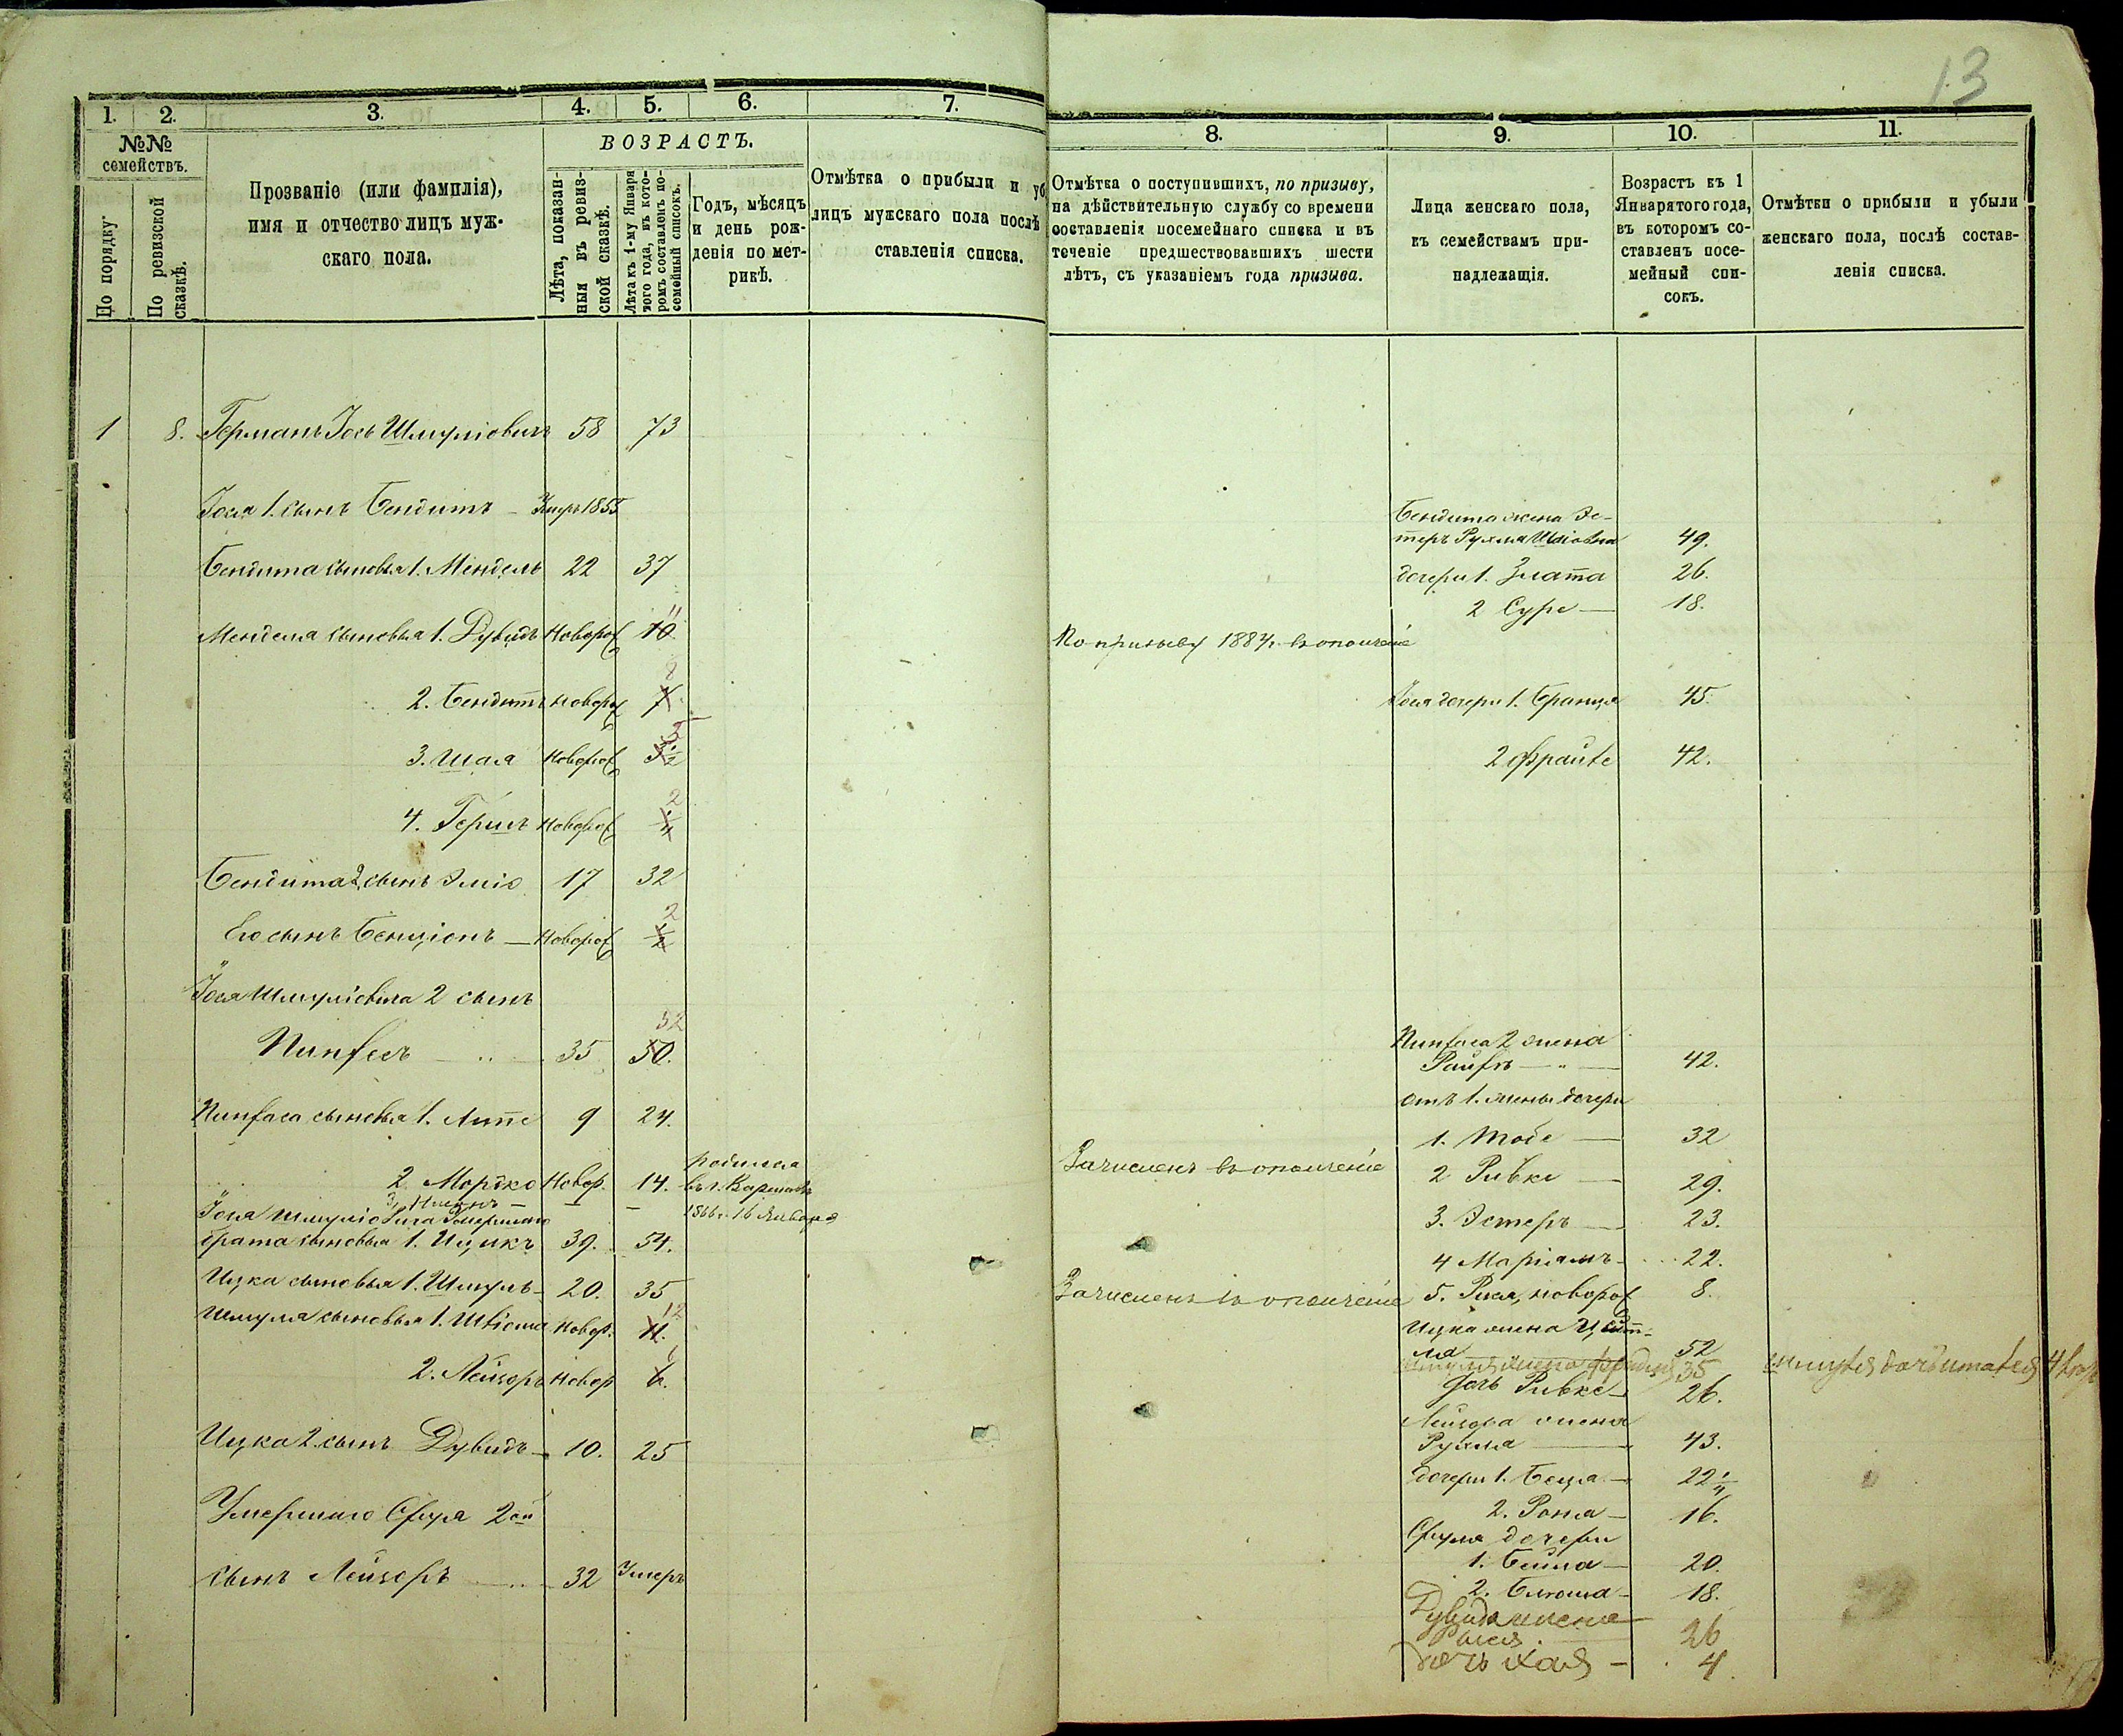 13
1. 2. 3. 4. 5. 6. 7.
№№ семействъ.
По порядку
По ревизской сказкѣ.
Прозваніе (или фамилія),
имя и отчество лицъ муж-
скаго пола.
ВОЗРАСТЪ.
Лѣта, показан-
ныя въ ревиз-
ской сказкѣ.
Лѣта къ 1-му Января
того года, въ кото-
ромъ составленъ по-
семейный списокъ.
Годъ, мѣсяцъ
и день рож-
денія по мет-
рикѣ.
Отмѣтка о прибыли и уб
лицъ мужскаго пола послѣ
ставленія списка.
1 8. Германъ Іось Шмуліовичъ 58 73
Іося 1. сынъ Бендитъ — Умеръ 1855
Бендита сыновья 1. Мендель 22 37
Менделя сыновья 1. Дувидъ Новорож 10. 11
2. Бендитъ новорож 7. 8
3. Шая Новорож 3½ 5
4. Гершъ Новорож ¼ 2
Бендита 2. сынъ Эліо 17 32
Его сынъ Бенціонъ — Новорож ½ 2
Іося Шмуліовича 2 сынъ
Пинхесъ 35 50. 52
Пинхаса сыновья 1. Липе 9 24.
2 Мордко Новор. 14. родился
въ г. Варшавѣ
1866 г. 16 Января
Іося Шмуліовича умершаго
брата сыновья 1. Ицикъ 39. 54.
Ицка сыновья 1. Шмуль 20. 35
Шмуля сыновья 1. новор. 11. 12
2. Лейзоръ новор 6.
Ицка 2. сынъ Дувидъ — 10. 25
Умершаго Сруля 2ой
сынъ Лейзоръ 32 Умеръ
8. 9. 10. 11.
Отмѣтка о поступившихъ, по призыву,
на дѣйствительную службу со времени
составленія посемейнаго списка и въ
теченіе предшествовавшихъ шести
лѣтъ, съ указаніемъ года призыва.
Лица женскаго пола,
къ семействамъ при-
надлежащія.
Возрастъ къ 1
Января того года,
въ которомъ со-
ставленъ посе-
мейный спи-
сокъ.
Отмѣтки о прибыли и убыли
женскаго пола, послѣ состав-
ленія списка.
Бендита жена Эс-
теръ Рухля 49.
дочери 1. Злата 26.
2 Суре — 18.
По призыву 1884 г. въ ополченіе
Іося дочери 1. Бранця 45.
2 Фрайде 42.
Пинхаса 2 жена
Райхъ 42.
отъ 1. жены дочери
1. Тобе — 32
Зачисленъ въ ополченіе
2 Ривке — 29.
3. Эстеръ — 23.
4 Маріамъ 22.
Зачисленъ въ ополченіе
5. Рися, новорож 8.
Ицка жена Цейт-
ля 52
35
дочь Ривке 26.
Лейзора жена
Рухля 43.
дочери 1. Беца 22¼
2. Роня — 16.
Сруля дочери
1. Бейла — 20.
2. Блюма — 18.
Дувида жена
26
дочь Хая — 4.